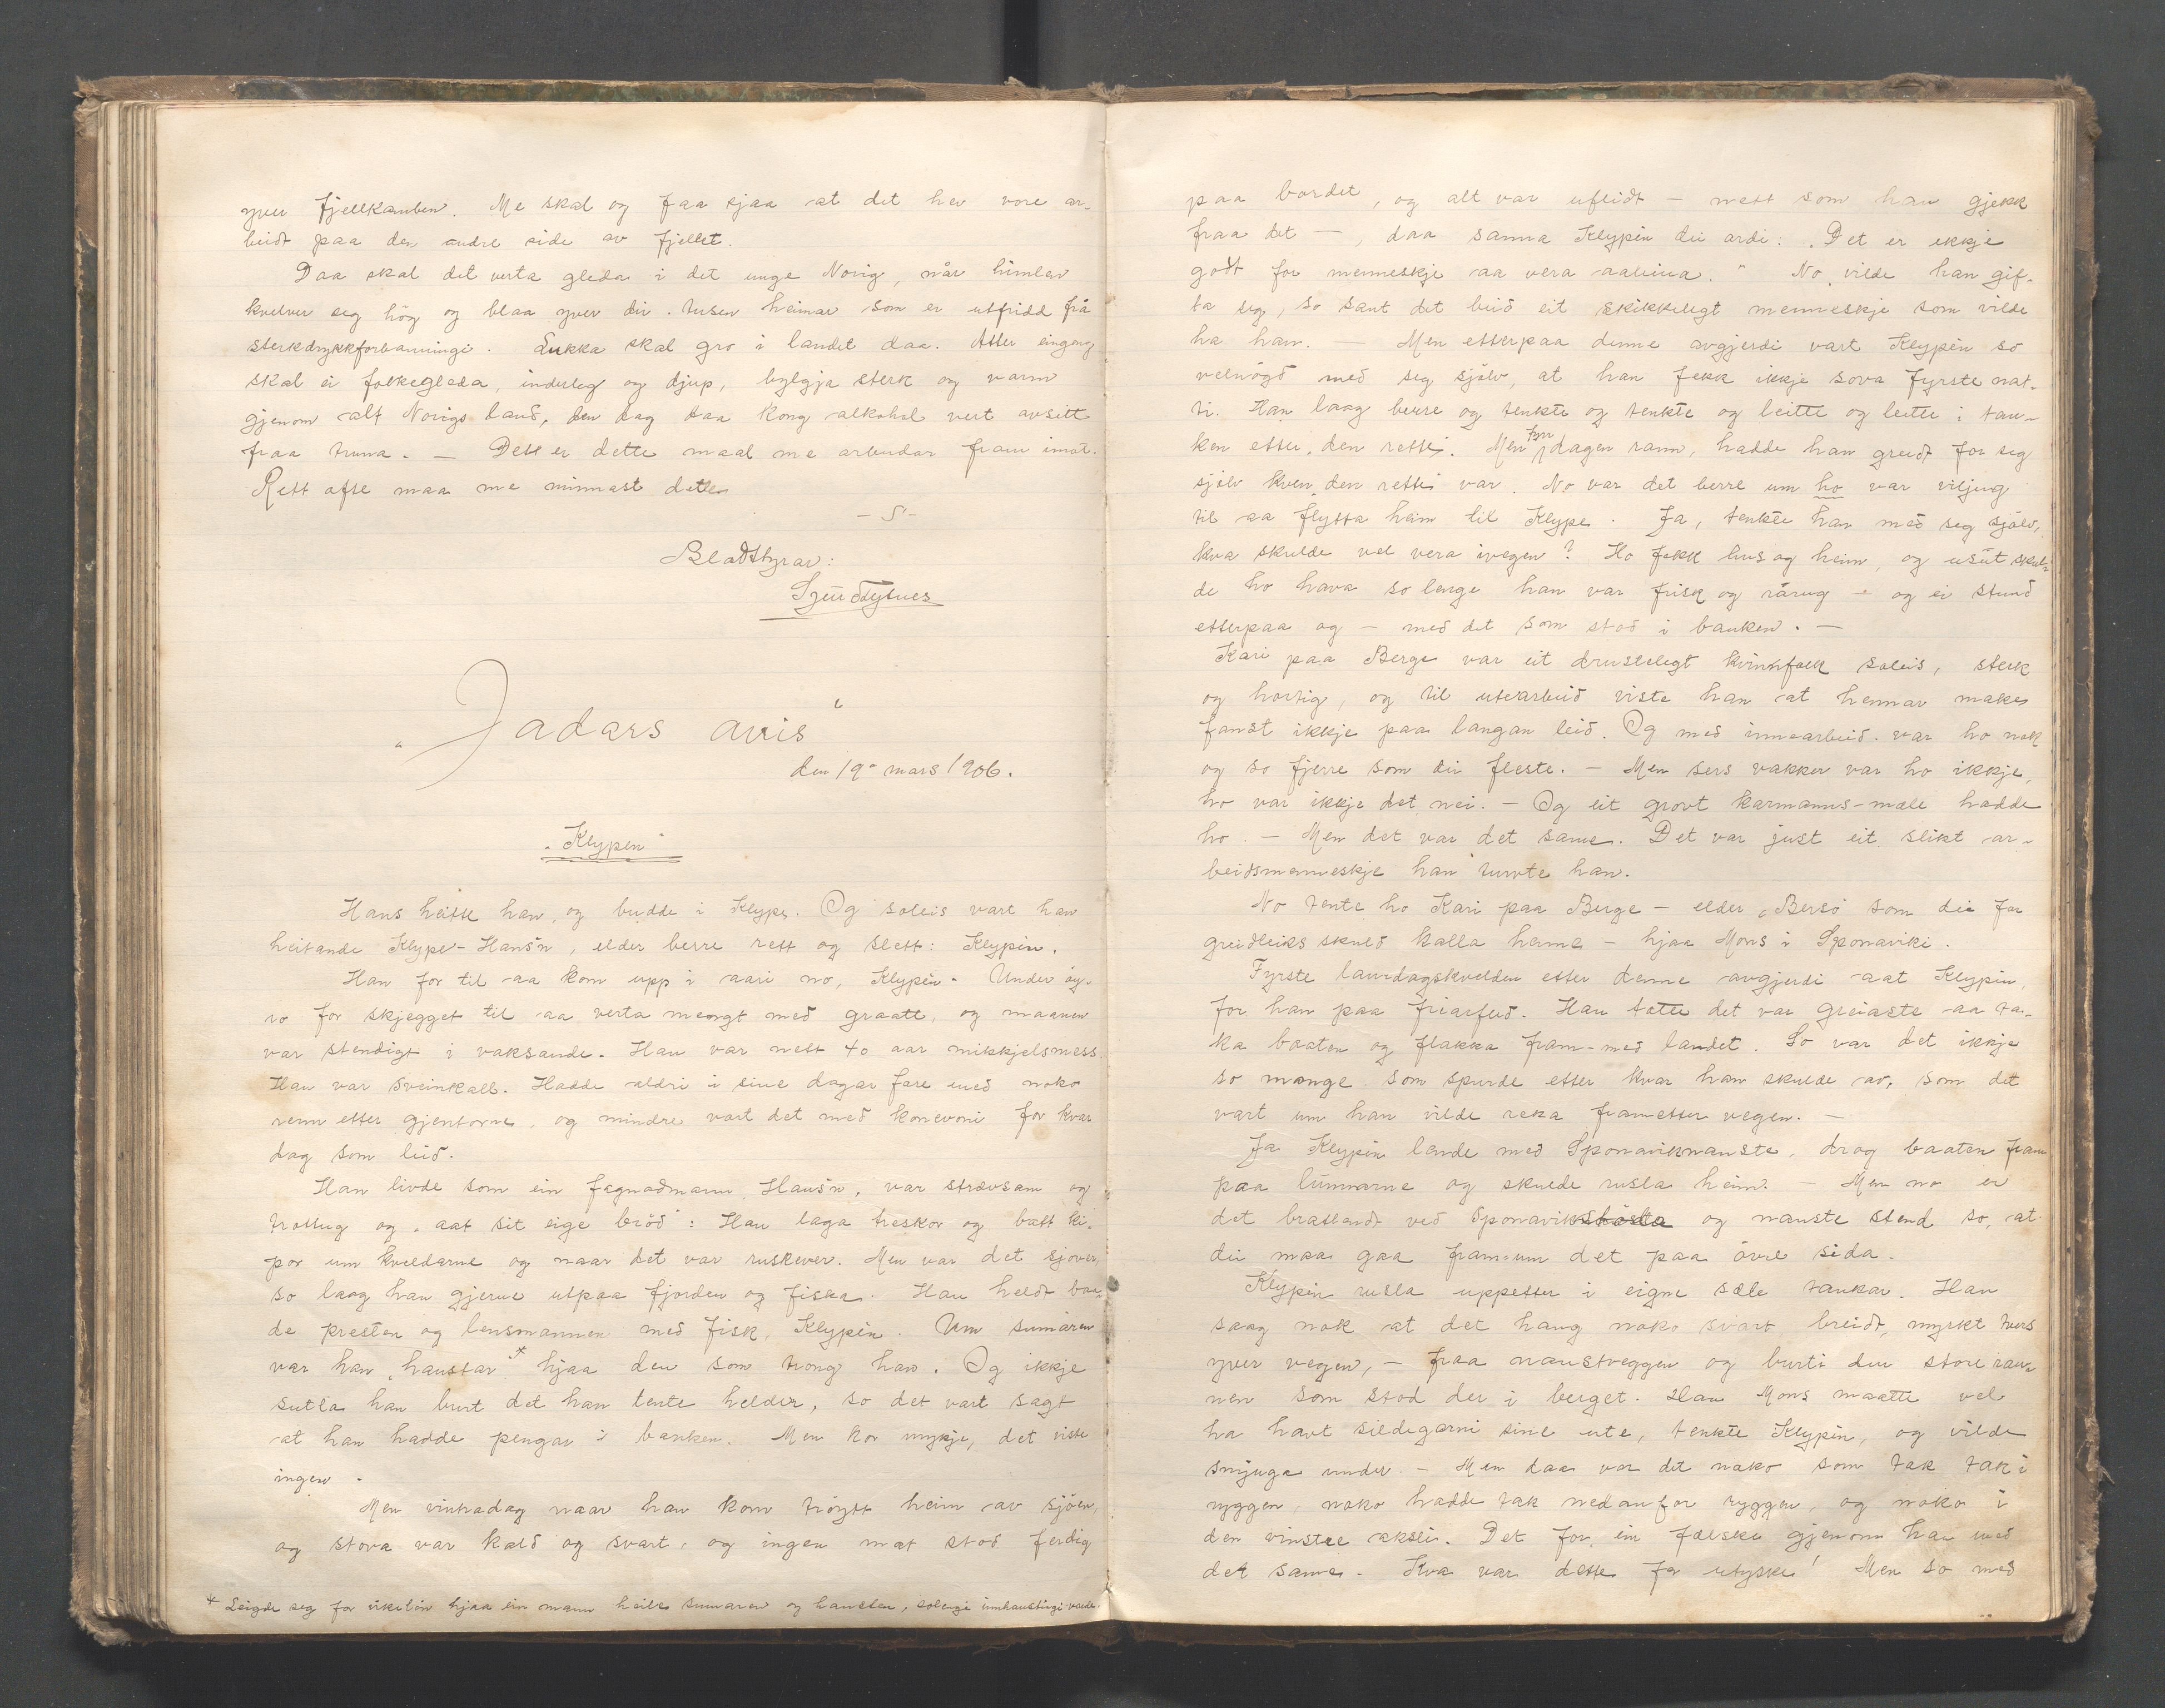 yver fjellkamben. Me skal og faa sjaa at det hev vore ar-
beidt paa den andre side av fjellet.
Daa skal det verta gleda i det unge Norig, når himlen
kvelver seg høg og blaa yver dei tusen heimar som er utfridd frå
sterkdrykkforbanningi. Lukka skal gro i landet daa. Atter eingong
skal ei folkegleda, inderleg og djup, bylgja sterk og varm
gjenom alt Norigs land, den dag daa kong alkohol vert avsett
fraa truna. — Dett er dette maal me arbeidar fram imot.
Rett ofte maa me minnast dette.
— S —
Bladstyrar:
Sjur Tytnes
„Jadars avis“
den 19de mars 1906.
„Klypen“
Hans heitte han, og budde i Klype. Og soleis vart han
heitande Klype-Hans'n, elder berre rett og slett: Klypin.
Han for til aa kom upp i aari no, Klypin. Under øy-
ro for skjegget til aa verta mengt med graatt, og maanen
var stendigt i vaksande. Han var nett 40 aar mikkjelsmess.
Han var sveinkall. Hadde aldri i sine dagar fare med noko
renn etter gjentorne, og mindre vart det med konevoni for kvar
dag som leid.
Han livde som ein fagnadmann, Hans'n, var strævsam og
trottug og „aat sit eige brød“: Han laga treskor og batt ki-
por um kveldarne og naar det var ruskever. Men var det sjøver,
so laag han gjerne utpaa fjorden og fiska. Han heldt baa-
de presten og lensmannen med fisk, Klypin. Um sumaren
var han „haustar“* hjaa den som trong han. Og ikkje
sutla han burt det han tente helder, so det vart sagt
at han hadde pengar i banken. Men kor mykje, det viste
ingen.
Men vintradag naar han kom trøytt heim av sjøen,
og stova var kald og svart, og ingen mat stod ferdig
* Leigde seg for vikeløn hjaa ein mann heile sumaren og hausten, solengi innhaustingi varde.
paa bordet, og alt var ufleidt — nett som han gjekk
fraa det —, daa sanna Klypin dei ordi: „Det er ikkje
godt for menneskje aa vera aaleina.“ No vilde han gif-
ta seg, so sant det beid eit skikkelegt menneskje som vilde
ha han. — Men etterpaa denne avgjerdi vart Klypin so
velnøgd med seg sjølv, at han fekk ikkje sova fyrste nat-
ti. Han laag berre og tenkte og tenkte og leitte og leitte i tan-
ken etter „den rette“. Men fyrr dagen rann, hadde han greidt for seg
sjølv kven „den rette“ var. No var det berre um ho var viljug
til aa flytta heim til Klype. Ja, tenkte han med seg sjølv,
kva skulde vel vera ivegen? Ho fekk hus og heim, og usut skul-
de ho hava so lenge han var frisk og rørug — og ei stund
etterpaa og — med det som stod i banken. —
Kari paa Berge var eit drustelegt kvinnfolk soleis, sterk
og hortig, og til utearbeid viste han at hennar make
fanst ikkje paa langan leid. Og med innearbeid var ho nok
og so fjerre som dei fleste. — Men sers vakker var ho ikkje,
ho var ikkje det, nei. — Og eit grovt karmanns-mæle hadde
ho. — Men det var det same. Det var just eit slikt ar-
beidsmenneskje han turvte han.
No tente ho Kari paa Berge — elder „Bersó“ som dei for
greidleiks skuld kalla henne — hjaa Mons i Sponaviki.
Fyrste laurdagskvelden etter denne avgjerdi aat Klypin,
for han paa friarferd. Han totte det var greiaste aa ta-
ka baaten og flakka fram-med landet. So var det ikkje
so mange som spurde etter kvar han skulde av, som det
vart um han vilde reka frametter vegen. —
Ja Klypin lande med Sponaviknauste, drog baaten fram
paa lunnarne og skulde rusla heim. — Men no er
det brattlendt ved Sponavikstøda og nauste stend so, at
dei maa gaa fram-um det paa øvre sida.
Klypin rusla uppetter i eigne sæle tankar. Han
saag nok at det hang noko svart breidt, myrkt tvers
yver vegen, — fraa naustveggen og burti den store rau-
nen som stod der i berget. Han Mons maatte vel
ha havt sildegarni sine ute, tenkte Klypin, og vilde
smjuga under. — Men daa var det noko som tok tak i
ryggen, noko hadde tak nedanfor ryggen, og noko i
den vinstre aksli. Det for ein fælske gjenom han med
det same. Kva var dette for utyske! Men so med